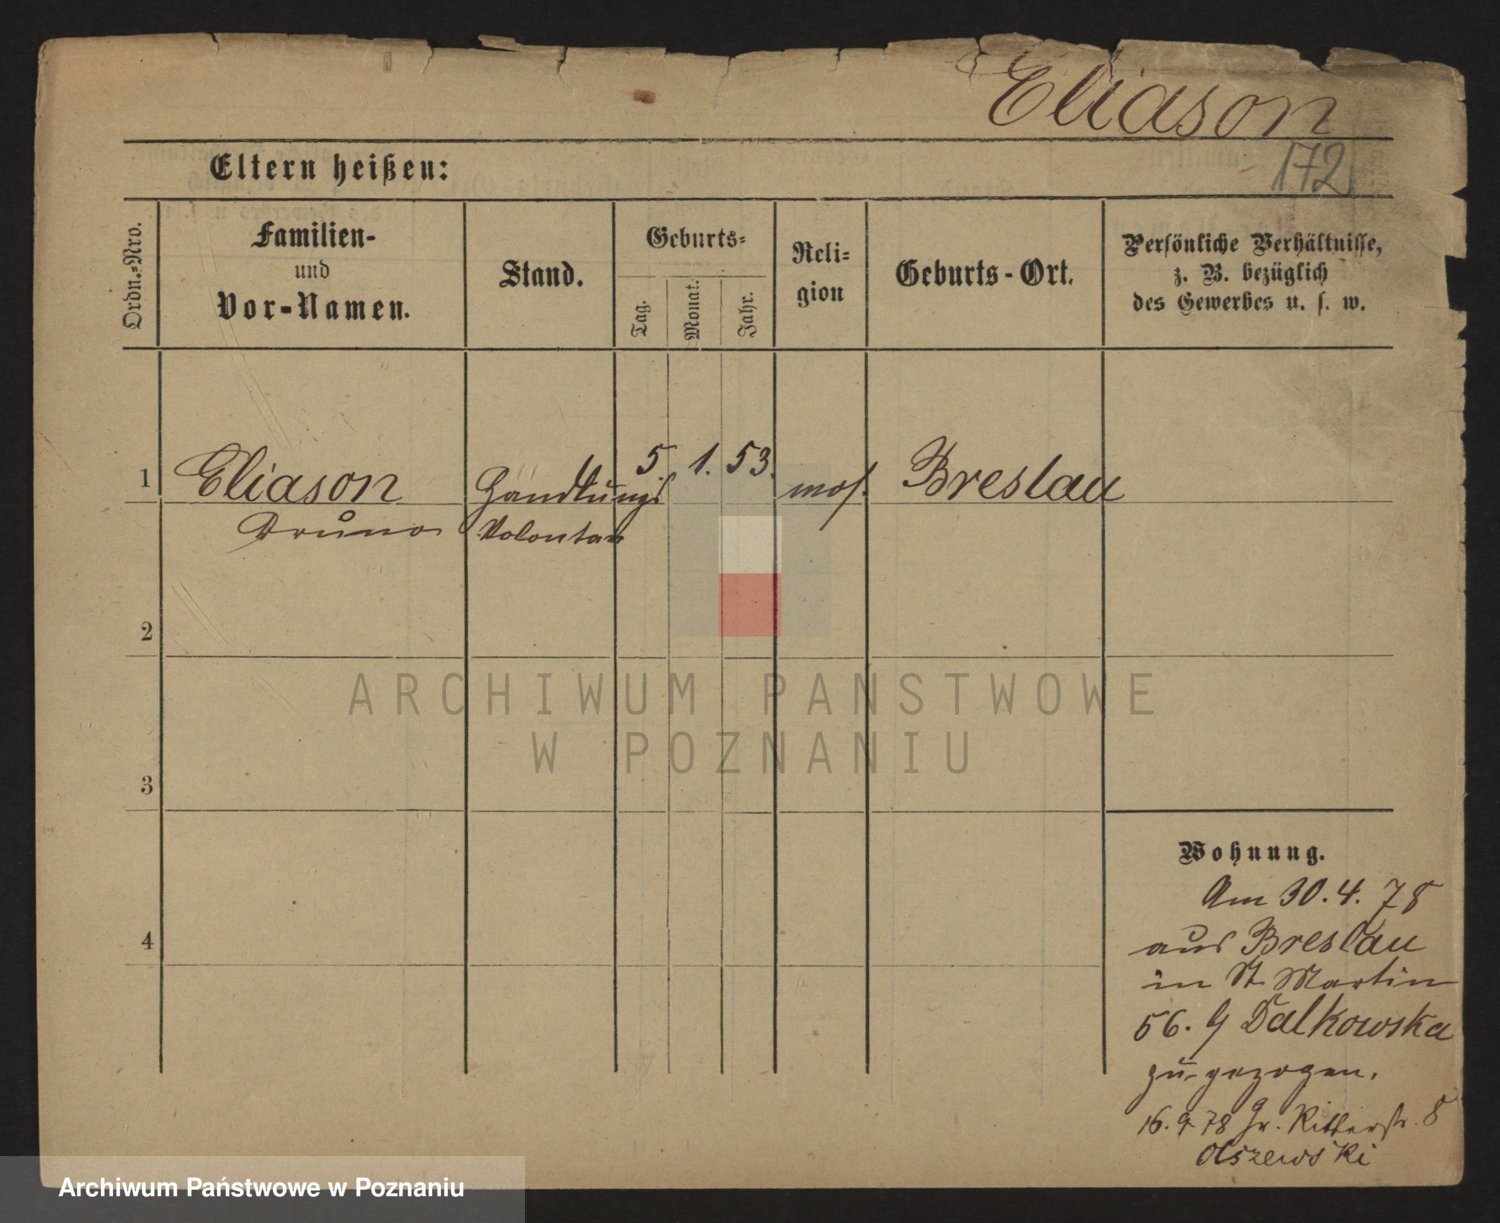 Eliason
172
Eltern heißen:
Ordn.-Nro.
Familien-
und
Vor-Namen.
Stand.
Geburts-
Tag.
Monat.
Jahr.
Reli-
gion
Geburts-Ort.
Persönliche Verhältnisse,
z. B. bezüglich
des Gewerbes u. s. w.
1 Eliason Handlungs 5. 1. 53. mos. Breslau
Bruno Volontär
2
3
4
Wohnung.
Am 30.4.78
aus Breslau
in St. Martin
56. Dalkowska
zu gezogen.
16.9.78 Gr. Ritterstr. 8
Olszewski
ARCHIWUM PAŃSTWOWE
W POZNANIU
Archiwum Państwowe w Poznaniu